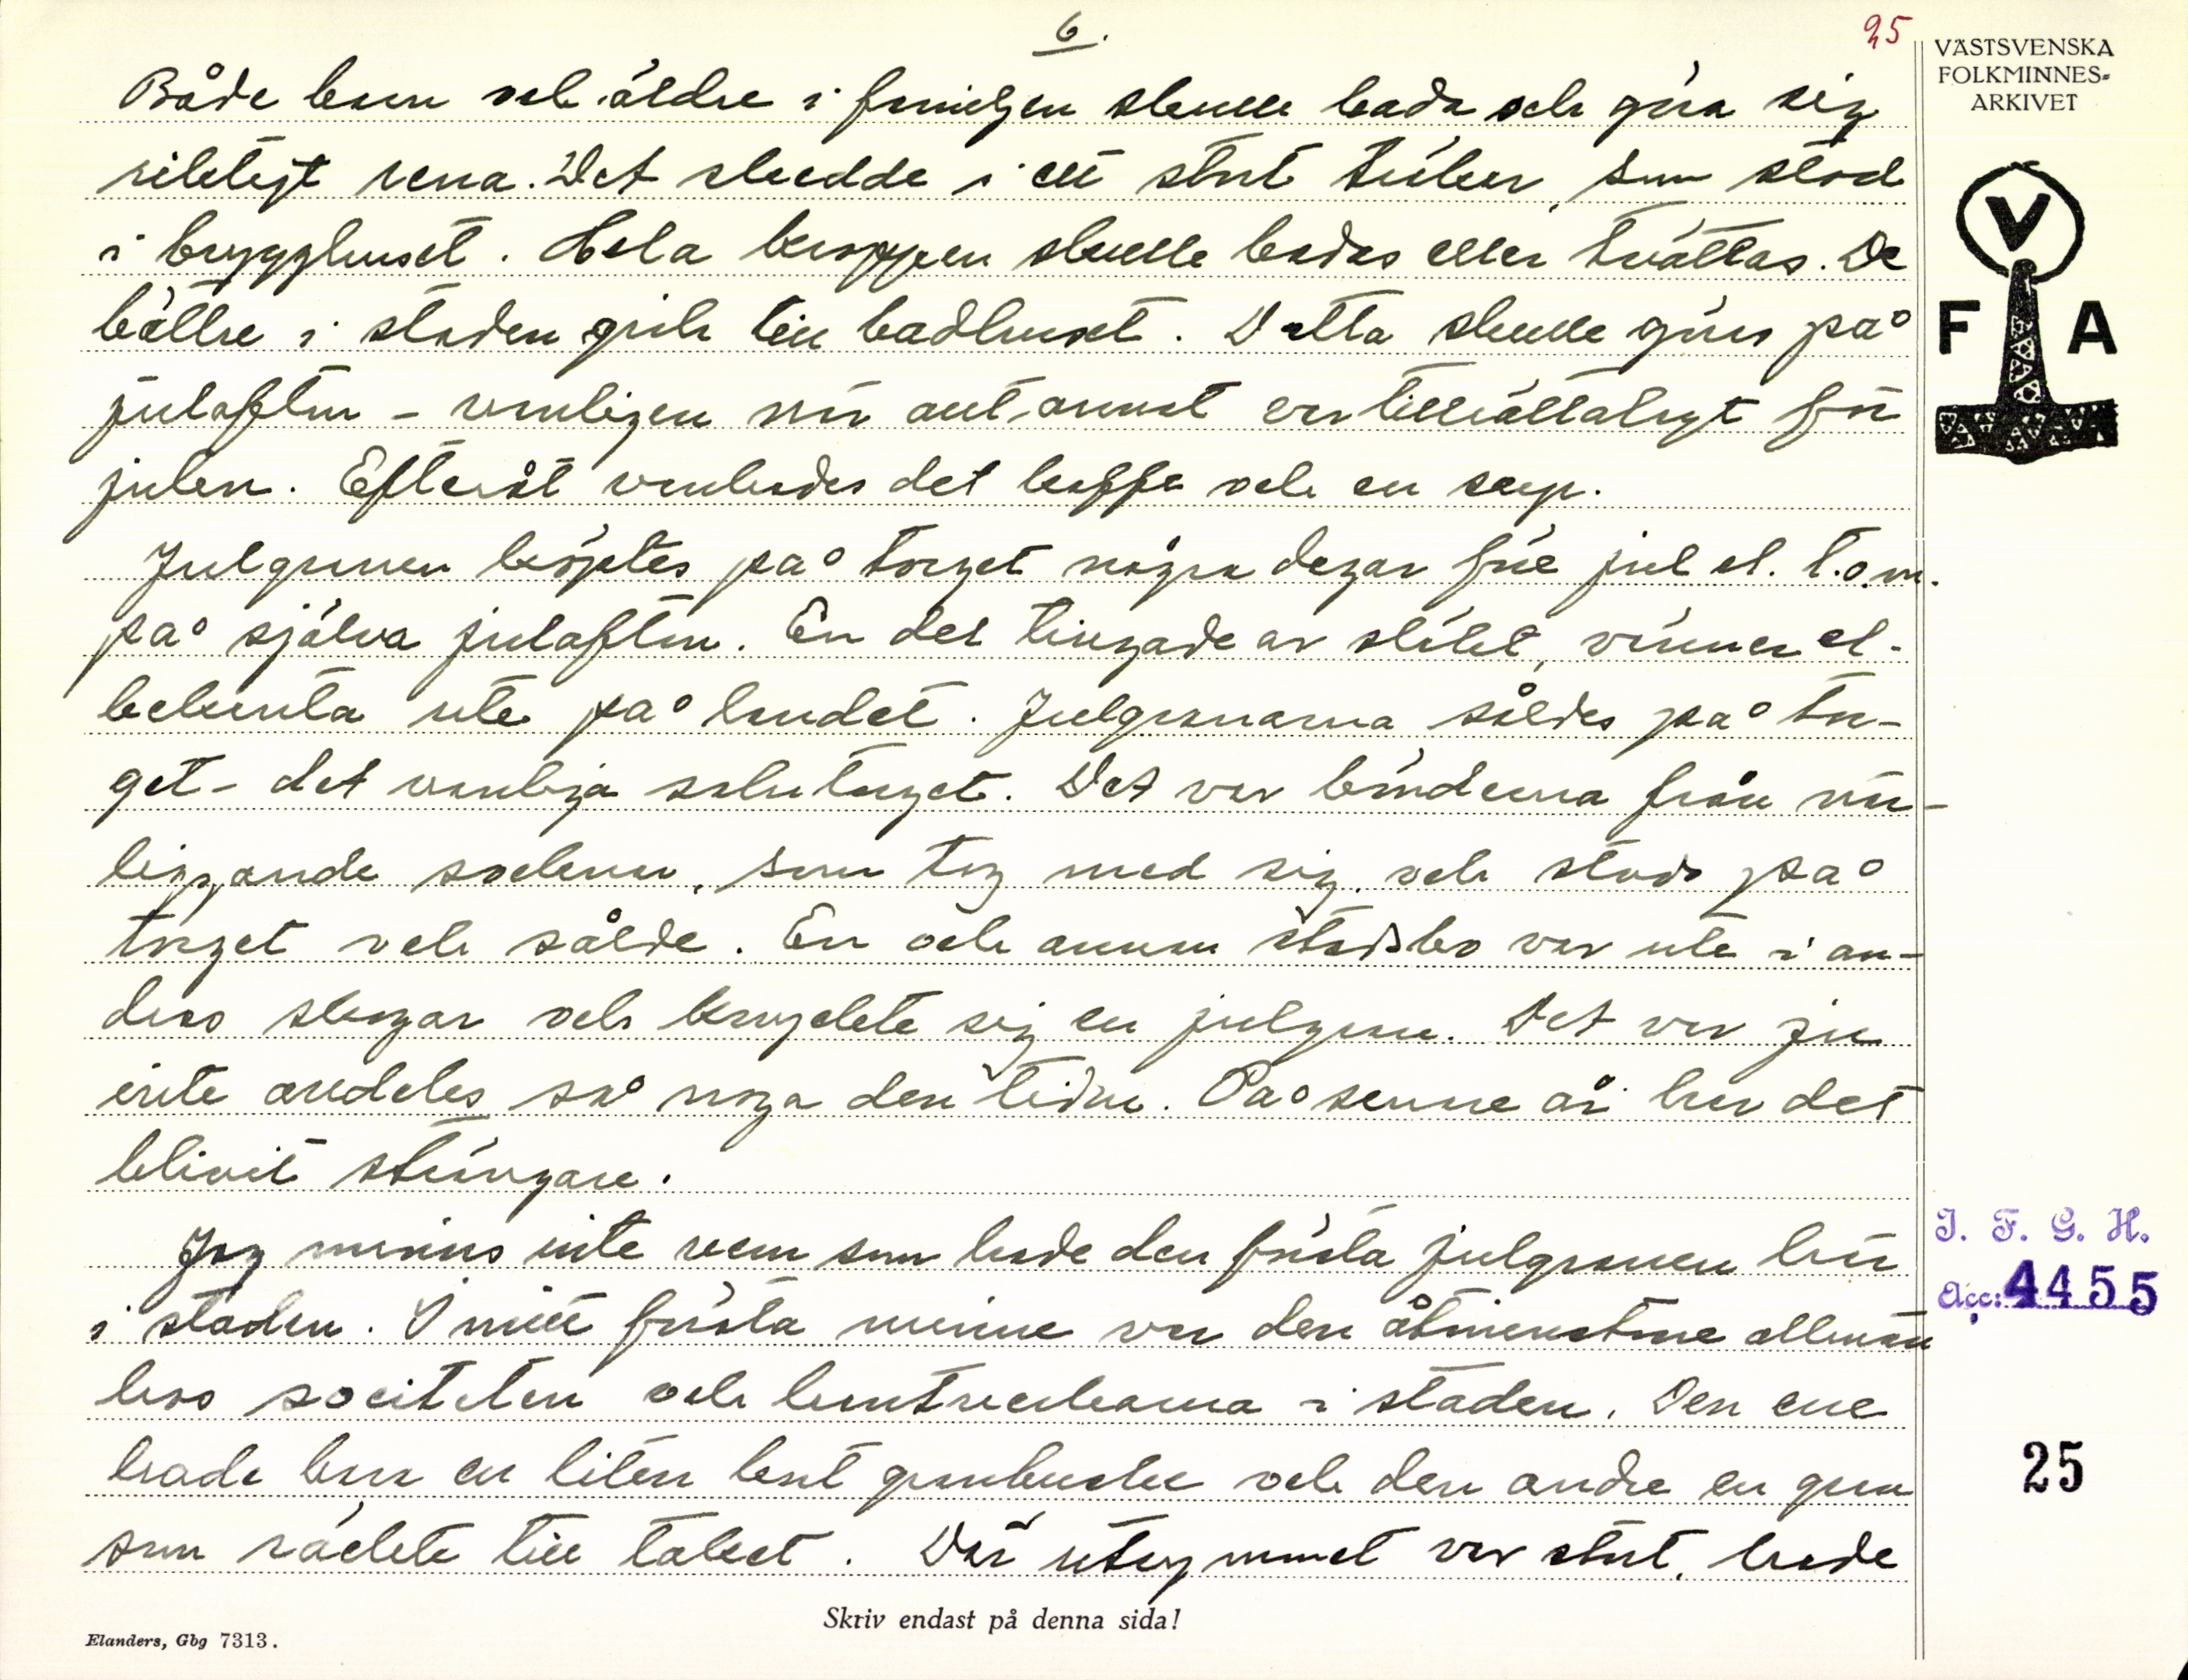 6.
25
VÄSTSVENSKA
FOLKMINNES-
ARKIVET
V
F A
Både barn och äldre i familjen skulle bada och göra sig
riktigt rena. Det skedde i ett stort träkar, som stod
i brygghuset. Hela kroppen skulle badas eller tvättas. De
bättre i staden gick till badhuset. Detta skulle göras på
julafton - vanligen när allt annat var tillrättalagt för
julen. Efteråt vankades det kaffe och en sup.
Julgranen köptes på torget några dagar före jul el. t.o.m.
på själva julafton. En del tingade av släkt, vänner el.
bekanta ute på landet. Julgranarna såldes på tor-
get - det vanliga salutorget. Det var bönderna från när-
liggande socknar, som tog med sig och stodo på
torget och sålde. En och annan stadsbo var ute i an-
dras skogar och knyckte sig en julgran. Det var ju
inte alldeles så noga den tiden. På senare år har det
blivit strängare.
Jag minns inte vem som hade den första julgranen här
i staden. I mitt första minne var den åtminstone allmän
hos societeten och hantverkarna i staden. Den ene
hade bara en liten kort granbuske och den andre en gran
som räckte till taket. Där utrymmet var stort, hade
I. F. G. H.
Acc: 4455
25
Skriv endast på denna sida!
Elanders, Gbg 7313.